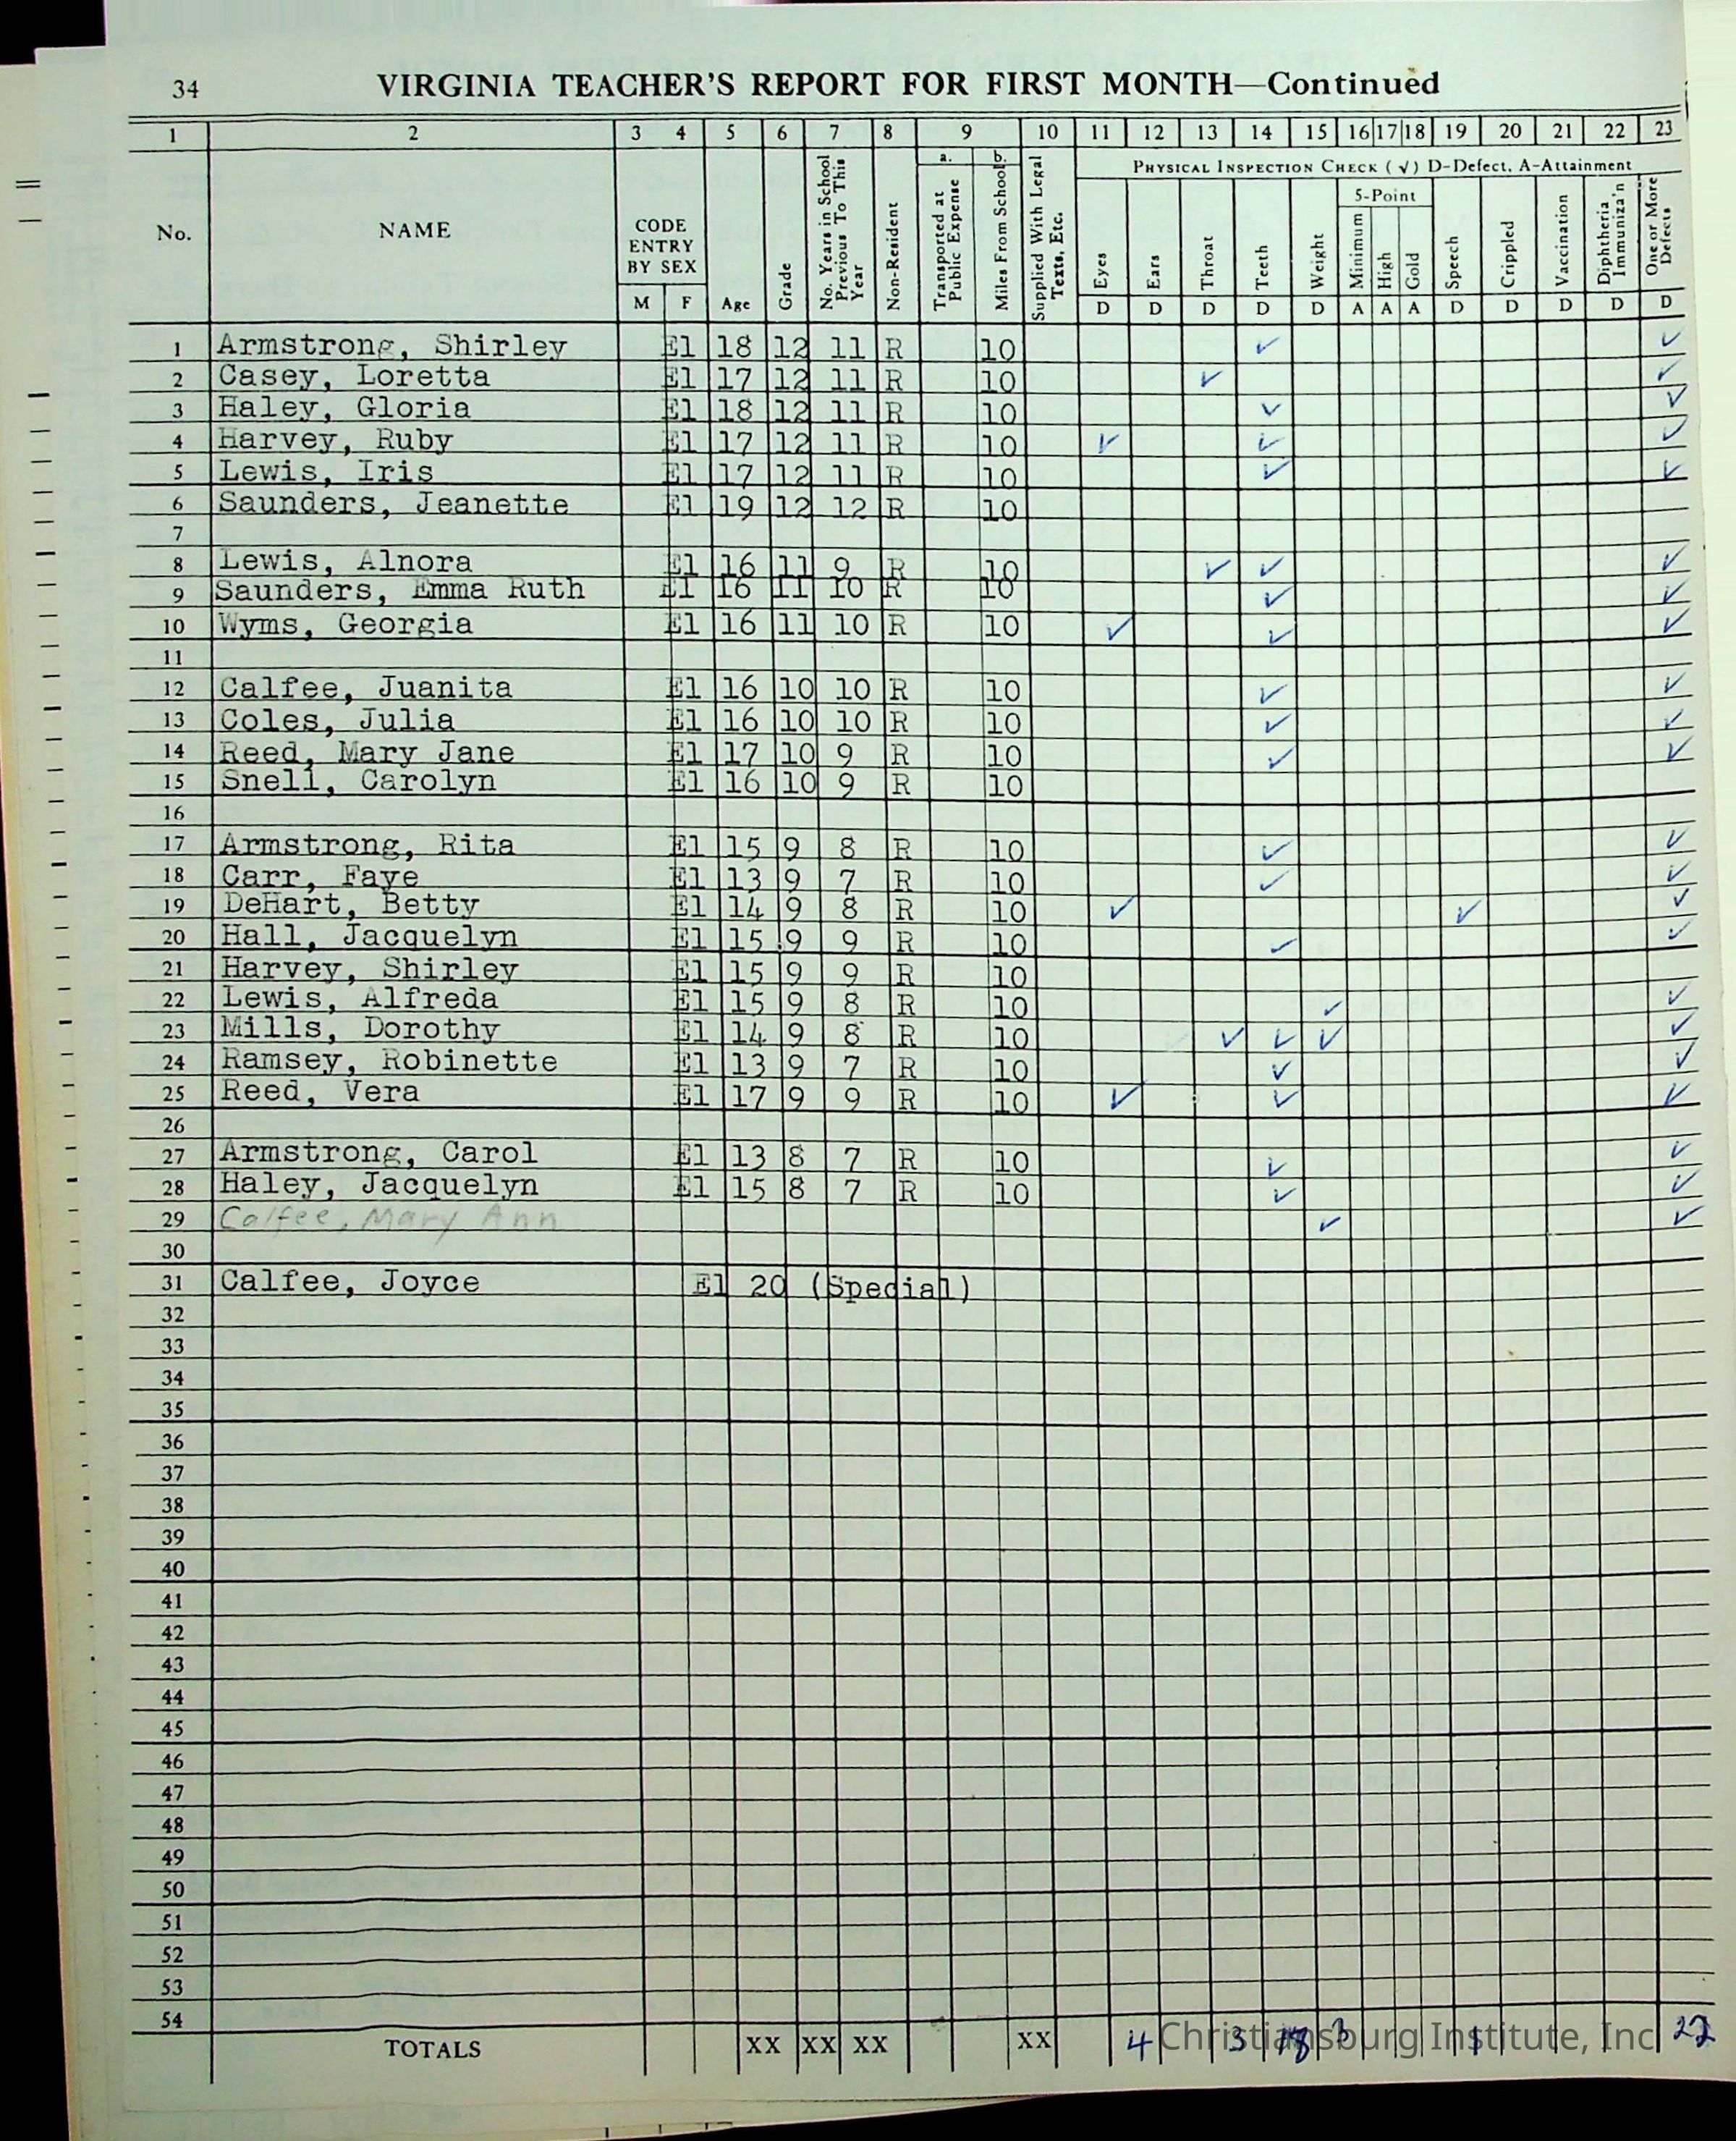 34 VIRGINIA TEACHER'S REPORT FOR FIRST MONTH—Continued
1 2 3 4 5 6 7 8 9 10 11 12 13 14 15 16 17 18 19 20 21 22 23
No. NAME CODE ENTRY BY SEX M F Age Grade No. Years in School Previous To This Year Non-Resident a. Transported at Public Expense b. Miles From School Supplied With Legal Texts, Etc.
PHYSICAL INSPECTION CHECK (√) D-Defect, A-Attainment
5-Point
Eyes Ears Throat Teeth Weight Minimum High Gold Speech Crippled Vaccination Diphtheria Immuniza'n One or More Defects
D D D D D A A A D D D D D
1 Armstrong, Shirley El 18 12 11 R 10 ✓ ✓
2 Casey, Loretta El 17 12 11 R 10 ✓ ✓
3 Haley, Gloria El 18 12 11 R 10 ✓ ✓
4 Harvey, Ruby El 17 12 11 R 10 ✓ ✓ ✓
5 Lewis, Iris El 17 12 11 R 10 ✓ ✓
6 Saunders, Jeanette El 19 12 12 R 10
7
8 Lewis, Alnora El 16 11 9 R 10 ✓ ✓ ✓
9 Saunders, Emma Ruth El 16 11 10 R 10 ✓ ✓
10 Wyms, Georgia El 16 11 10 R 10 ✓ ✓ ✓
11
12 Calfee, Juanita El 16 10 10 R 10 ✓ ✓
13 Coles, Julia El 16 10 10 R 10 ✓ ✓
14 Reed, Mary Jane El 17 10 9 R 10 ✓ ✓
15 Snell, Carolyn El 16 10 9 R 10
16
17 Armstrong, Rita El 15 9 8 R 10 ✓ ✓
18 Carr, Faye El 13 9 7 R 10 ✓ ✓
19 DeHart, Betty El 14 9 8 R 10 ✓ ✓ ✓
20 Hall, Jacquelyn El 15 9 9 R 10 ✓ ✓
21 Harvey, Shirley El 15 9 9 R 10
22 Lewis, Alfreda El 15 9 8 R 10 ✓ ✓
23 Mills, Dorothy El 14 9 8 R 10 ✓ ✓ ✓ ✓
24 Ramsey, Robinette El 13 9 7 R 10 ✓ ✓
25 Reed, Vera El 17 9 9 R 10 ✓ ✓ ✓
26
27 Armstrong, Carol El 13 8 7 R 10 ✓ ✓
28 Haley, Jacquelyn El 15 8 7 R 10 ✓ ✓
29 Calfee, Mary Ann ✓ ✓
30
31 Calfee, Joyce El 20 (Special)
32
33
34
35
36
37
38
39
40
41
42
43
44
45
46
47
48
49
50
51
52
53
54
TOTALS XX XX XX XX 4 3 18 3 1 22
Christiansburg Institute, Inc